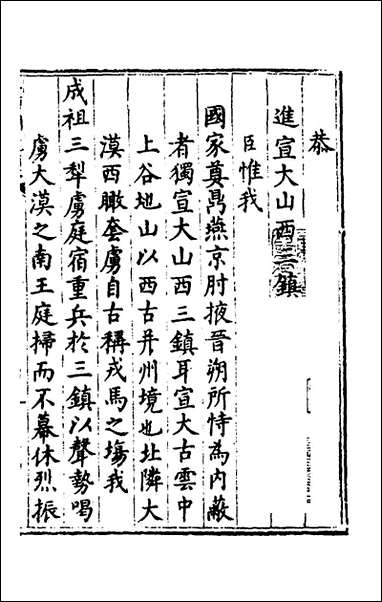 恭
進宣大山西三鎮
臣惟我
國家奠鼎燕京肘掖晉朔所恃為内蔽
者獨宣大山西三鎮耳宣大古雲中
上谷地山以西古并州境也北隣大
漠西瞰套虜自古稱戎馬之塲我
成祖三犁虜庭宿重兵於三鎮以聲勢喝
虜大漠之南王庭掃而不幕休烈振